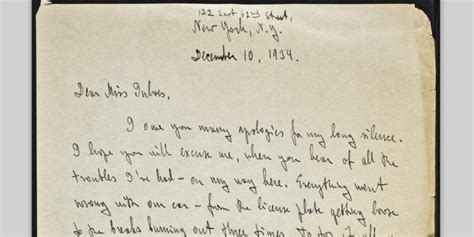 122 East 62nd Street,
New York, N.Y.
December 10, 1934.
Dear Miss
I owe you many apologies for my long silence.
I hope you will excuse me, when you hear of all the
troubles I've had – on my way here. Everything went
wrong with our car – from the license plate getting loose
to the breaks burning out three times. To top it all